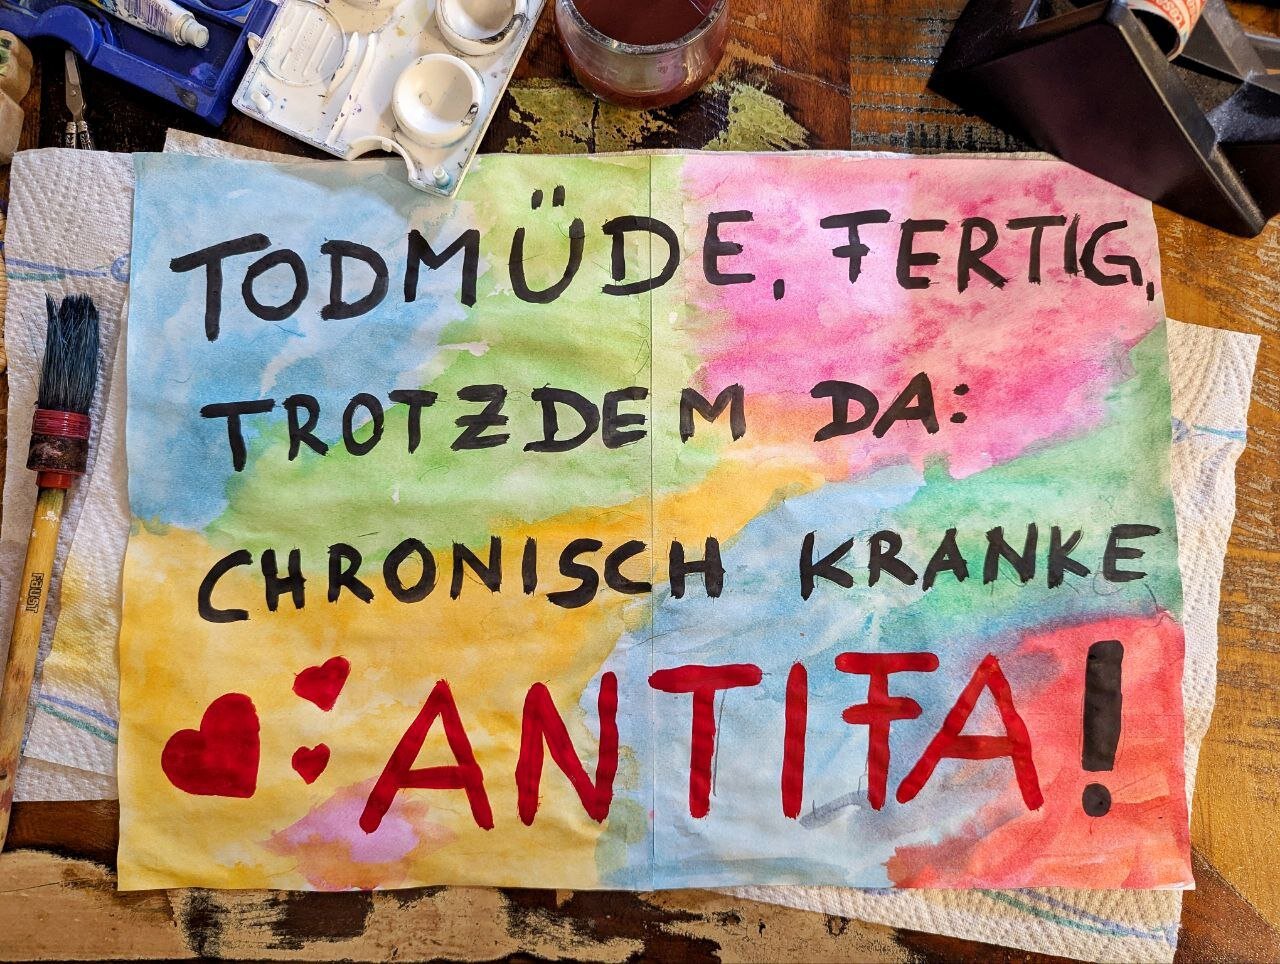 TODMÜDE, FERTIG,
TROTZDEM DA:
CHRONISCH KRANKE
ANTIFA!
FAUST